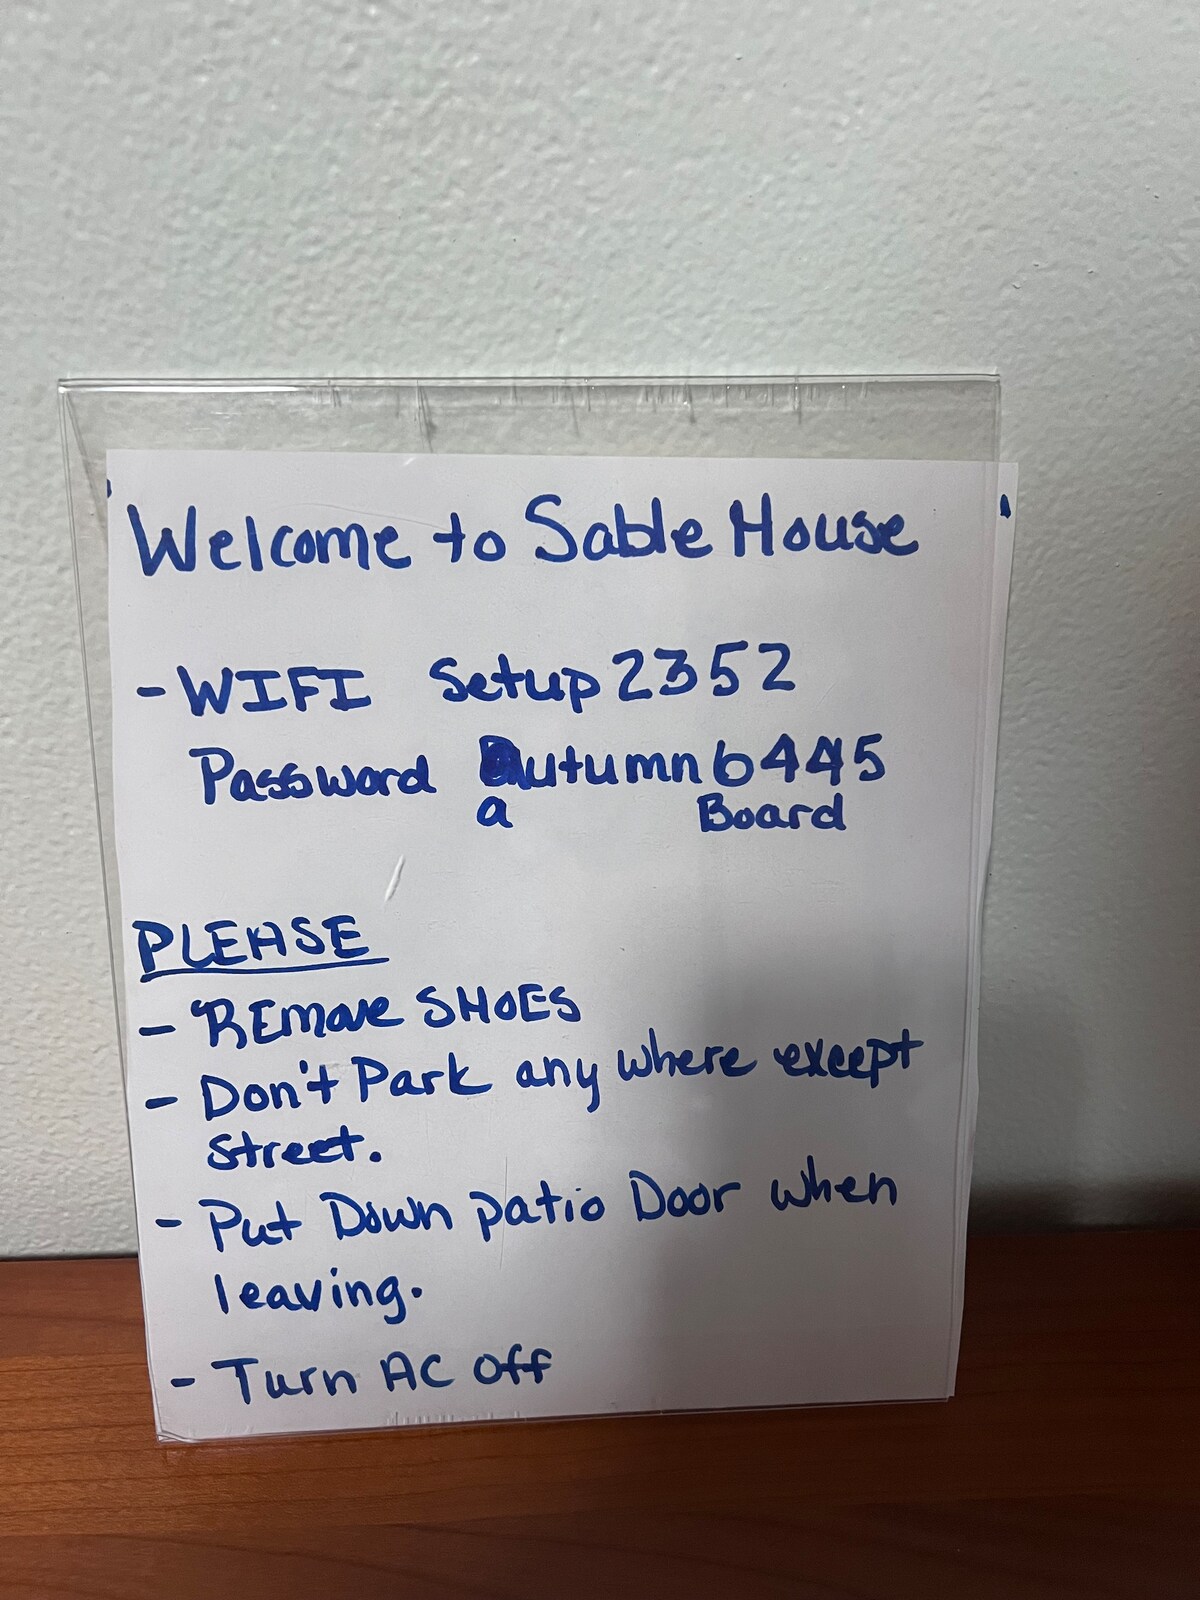 Welcome to Sable House
- WIFI Setup2352
Password autumn6445
a Board
PLEASE
- REmove SHOES
- Don't Park any where except
street.
- Put Down patio Door when
leaving.
- Turn AC Off